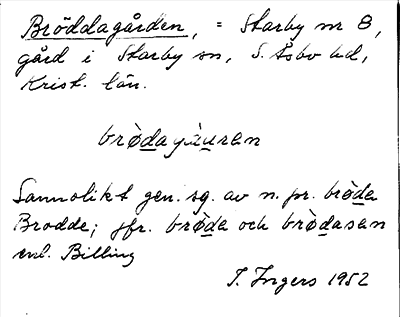 Bröddagården, = Starby nr 8,
gård i Starby sn, S. Åsbo hd,
Krist. län.
brø̀dagɑ̀uran
Sannolikt gen. sg. av n. pr. brø̀da
Brodde; jfr. brø̀da och brø̀dasan
enl. Billing
I. Ingers 1952